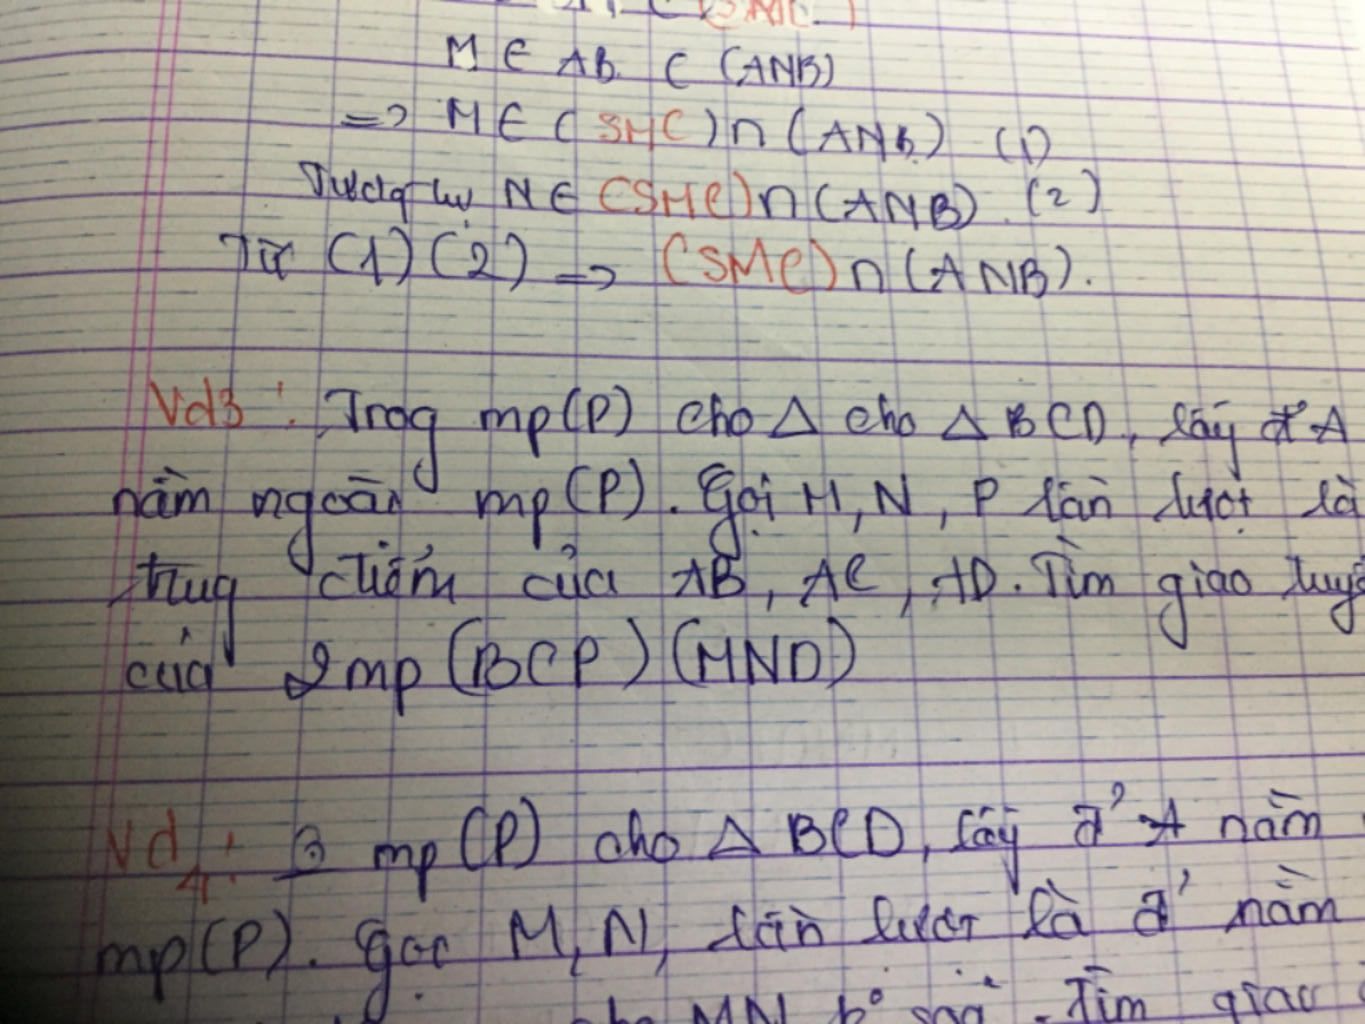 M ∈ AB ⊂ (ANB)
=> M ∈ (SMC) ∩ (ANB) (1)
Tương tự N ∈ (SMC) ∩ (ANB) (2)
Từ (1) (2) => (SMC) ∩ (ANB).
Vd3: Trog mp(P) cho Δ cho Δ BCD, lấy đ' A
nằm ngoài mp(P). Gọi M, N, P lần lượt là
trug điểm của AB, AC, AD. Tìm giao tuyế
của 2mp (BCP) (MND)
Vd4: mp(P) cho Δ BCD, lấy đ' A nằm
mp(P). Gọi M, N, lần lượt là đ' nằm
cho MN k° sog². Tìm giao